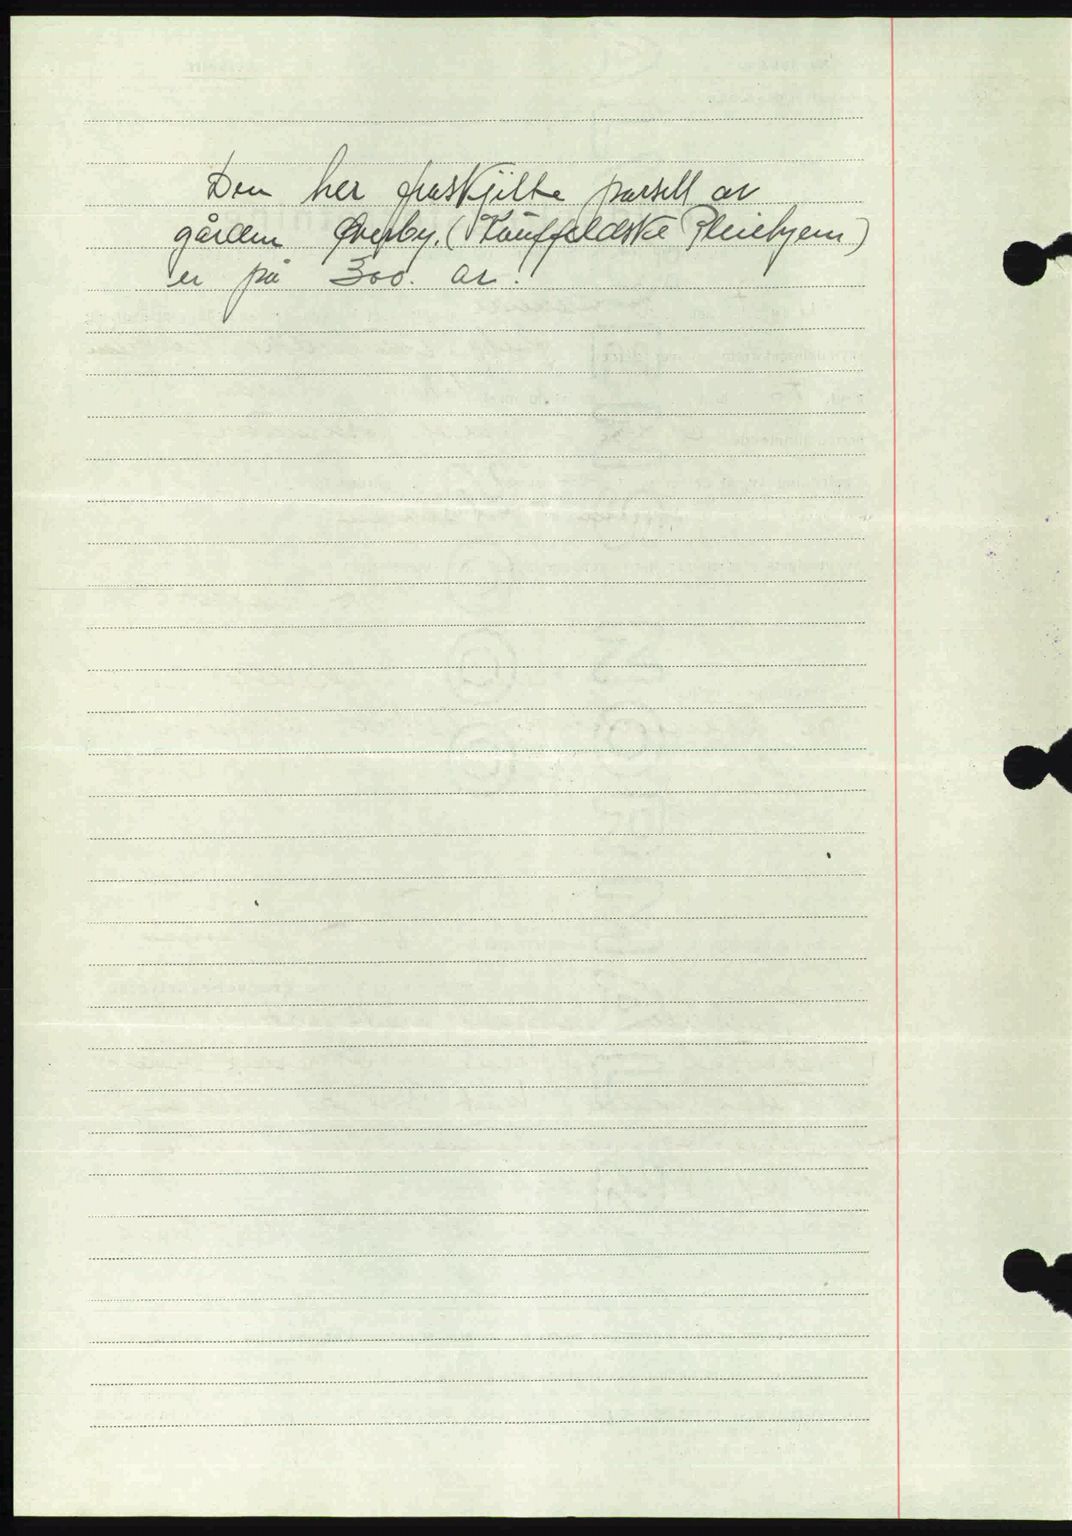 Den her fraskjilte parsell av
gården Øverby. (Kauffeldske Pleiehjem)
er på 300. ar.